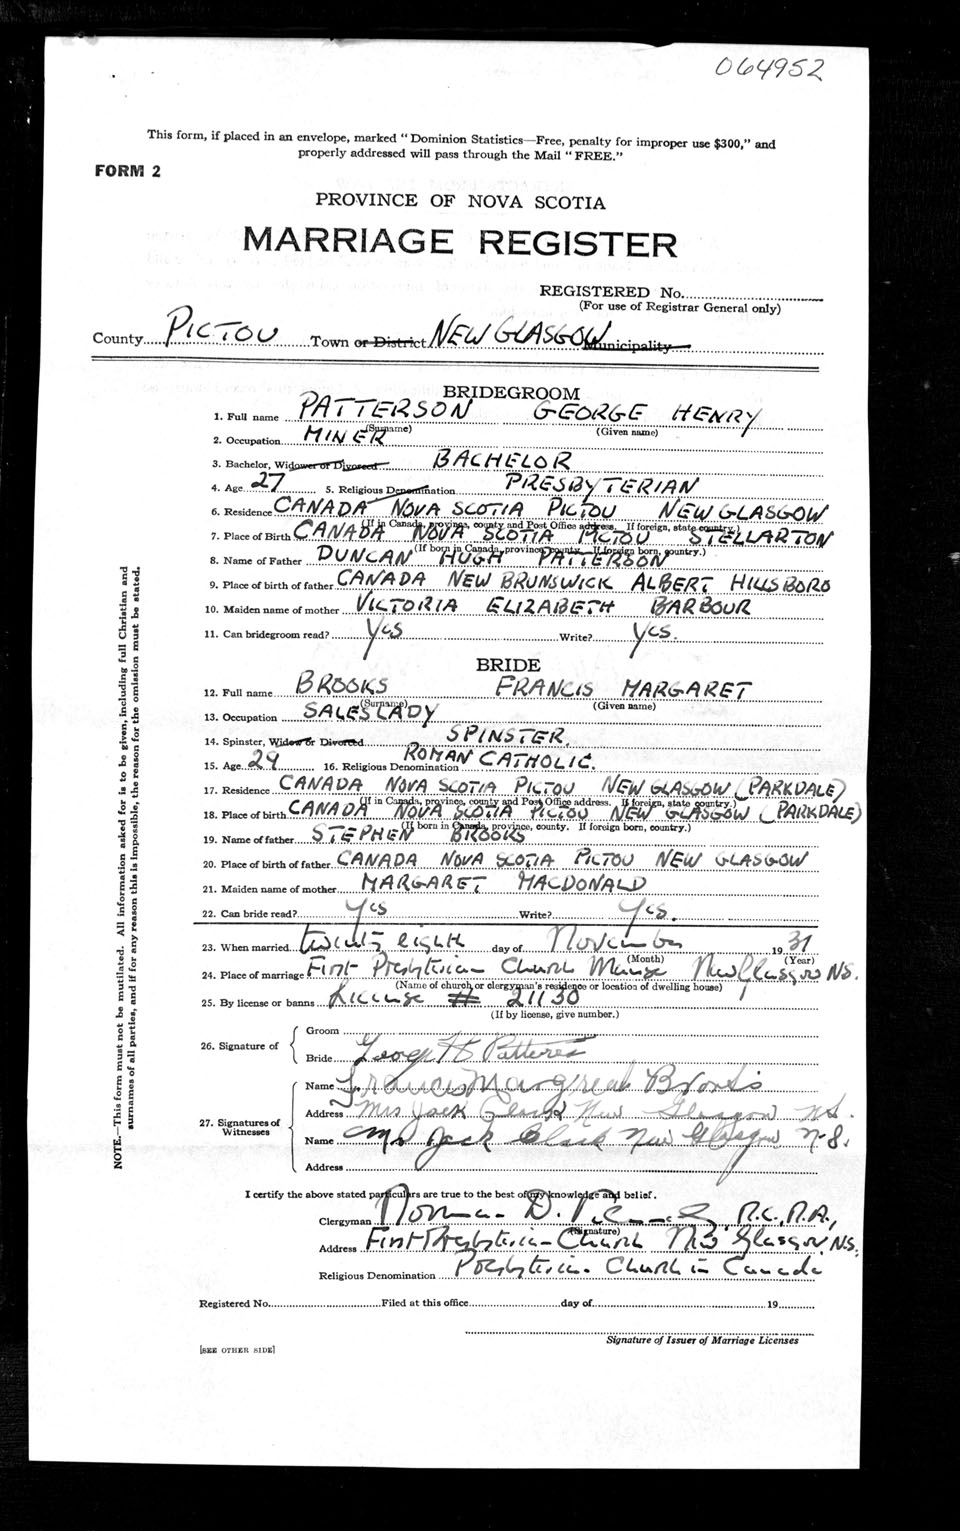 064952
This form, if placed in an envelope, marked "Dominion Statistics—Free, penalty for improper use $300," and
properly addressed will pass through the Mail "FREE."
FORM 2
PROVINCE OF NOVA SCOTIA
MARRIAGE REGISTER
REGISTERED No.
(For use of Registrar General only)
County PICTOU Town or District NEW GLASGOW Municipality
BRIDEGROOM
1. Full name PATTERSON GEORGE HENRY
(Surname) (Given name)
2. Occupation MINER
3. Bachelor, Widower or Divorced BACHELOR
4. Age 27 5. Religious Denomination PRESBYTERIAN
6. Residence CANADA NOVA SCOTIA PICTOU NEW GLASGOW
(If in Canada, province, county and Post Office address. If foreign, state country.)
7. Place of Birth CANADA NOVA SCOTIA PICTOU STELLARTON
(If born in Canada, province, county. If foreign born, country.)
8. Name of Father DUNCAN HUGH PATTERSON
9. Place of birth of father CANADA NEW BRUNSWICK ALBERT HILLSBORO
10. Maiden name of mother VICTORIA ELIZABETH BARBOUR
11. Can bridegroom read? Yes Write? Yes.
BRIDE
12. Full name BROOKS FRANCIS MARGARET
(Surname) (Given name)
13. Occupation SALESLADY
14. Spinster, Widow or Divorced SPINSTER.
15. Age 29 16. Religious Denomination ROMAN CATHOLIC.
17. Residence CANADA NOVA SCOTIA PICTOU NEW GLASGOW (PARKDALE)
(If in Canada, province, county and Post Office address. If foreign, state country.)
18. Place of birth CANADA NOVA SCOTIA PICTOU NEW GLASGOW (PARKDALE)
(If born in Canada, province, county. If foreign born, country.)
19. Name of father STEPHEN BROOKS
20. Place of birth of father CANADA NOVA SCOTIA PICTOU NEW GLASGOW
21. Maiden name of mother MARGARET MACDONALD
22. Can bride read? Yes Write? Yes.
23. When married twenty eighth day of November 1931
(Month) (Year)
24. Place of marriage First Presbyterian Church Manse New Glasgow NS.
(Name of church or clergyman's residence or location of dwelling house)
25. By license or banns License # 21130
(If by license, give number.)
26. Signature of
Groom
Bride George H Patterson
27. Signatures of Witnesses
Name Francis Margreat Brooks
Address Mrs Jack New Glasgow NS.
Name Mr Jack Clark New Glasgow N.S.
Address
I certify the above stated particulars are true to the best of my knowledge and belief.
Clergyman Norman D.
(Signature)
Address First Presbyterian Church New Glasgow, NS.
Religious Denomination Presbyterian Church in Canada
Registered No. Filed at this office day of 19
Signature of Issuer of Marriage Licenses
[SEE OTHER SIDE]
NOTE.—This form must not be mutilated. All information asked for is to be given, including full Christian and
surnames of all parties, and if for any reason this is impossible, the reason for the omission must be stated.